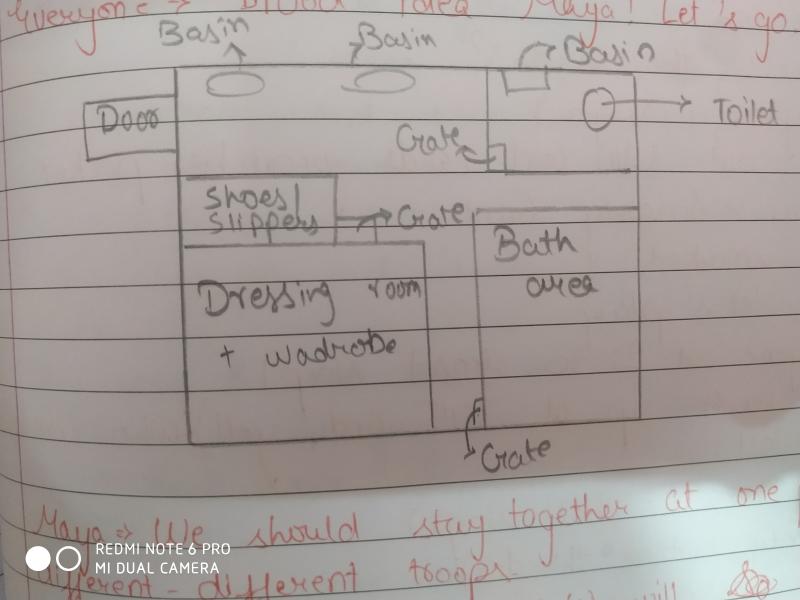 Everyone ⇒ Maya! Let's go.
Basin
Basin
Basin
Door
Toilet
Crate
Shoes/
slippers
Crate
Bath
area
Dressing room
+ wadrobe
Crate
Maya ⇒ We should stay together at one
different-different troops.
will
REDMI NOTE 6 PRO
MI DUAL CAMERA